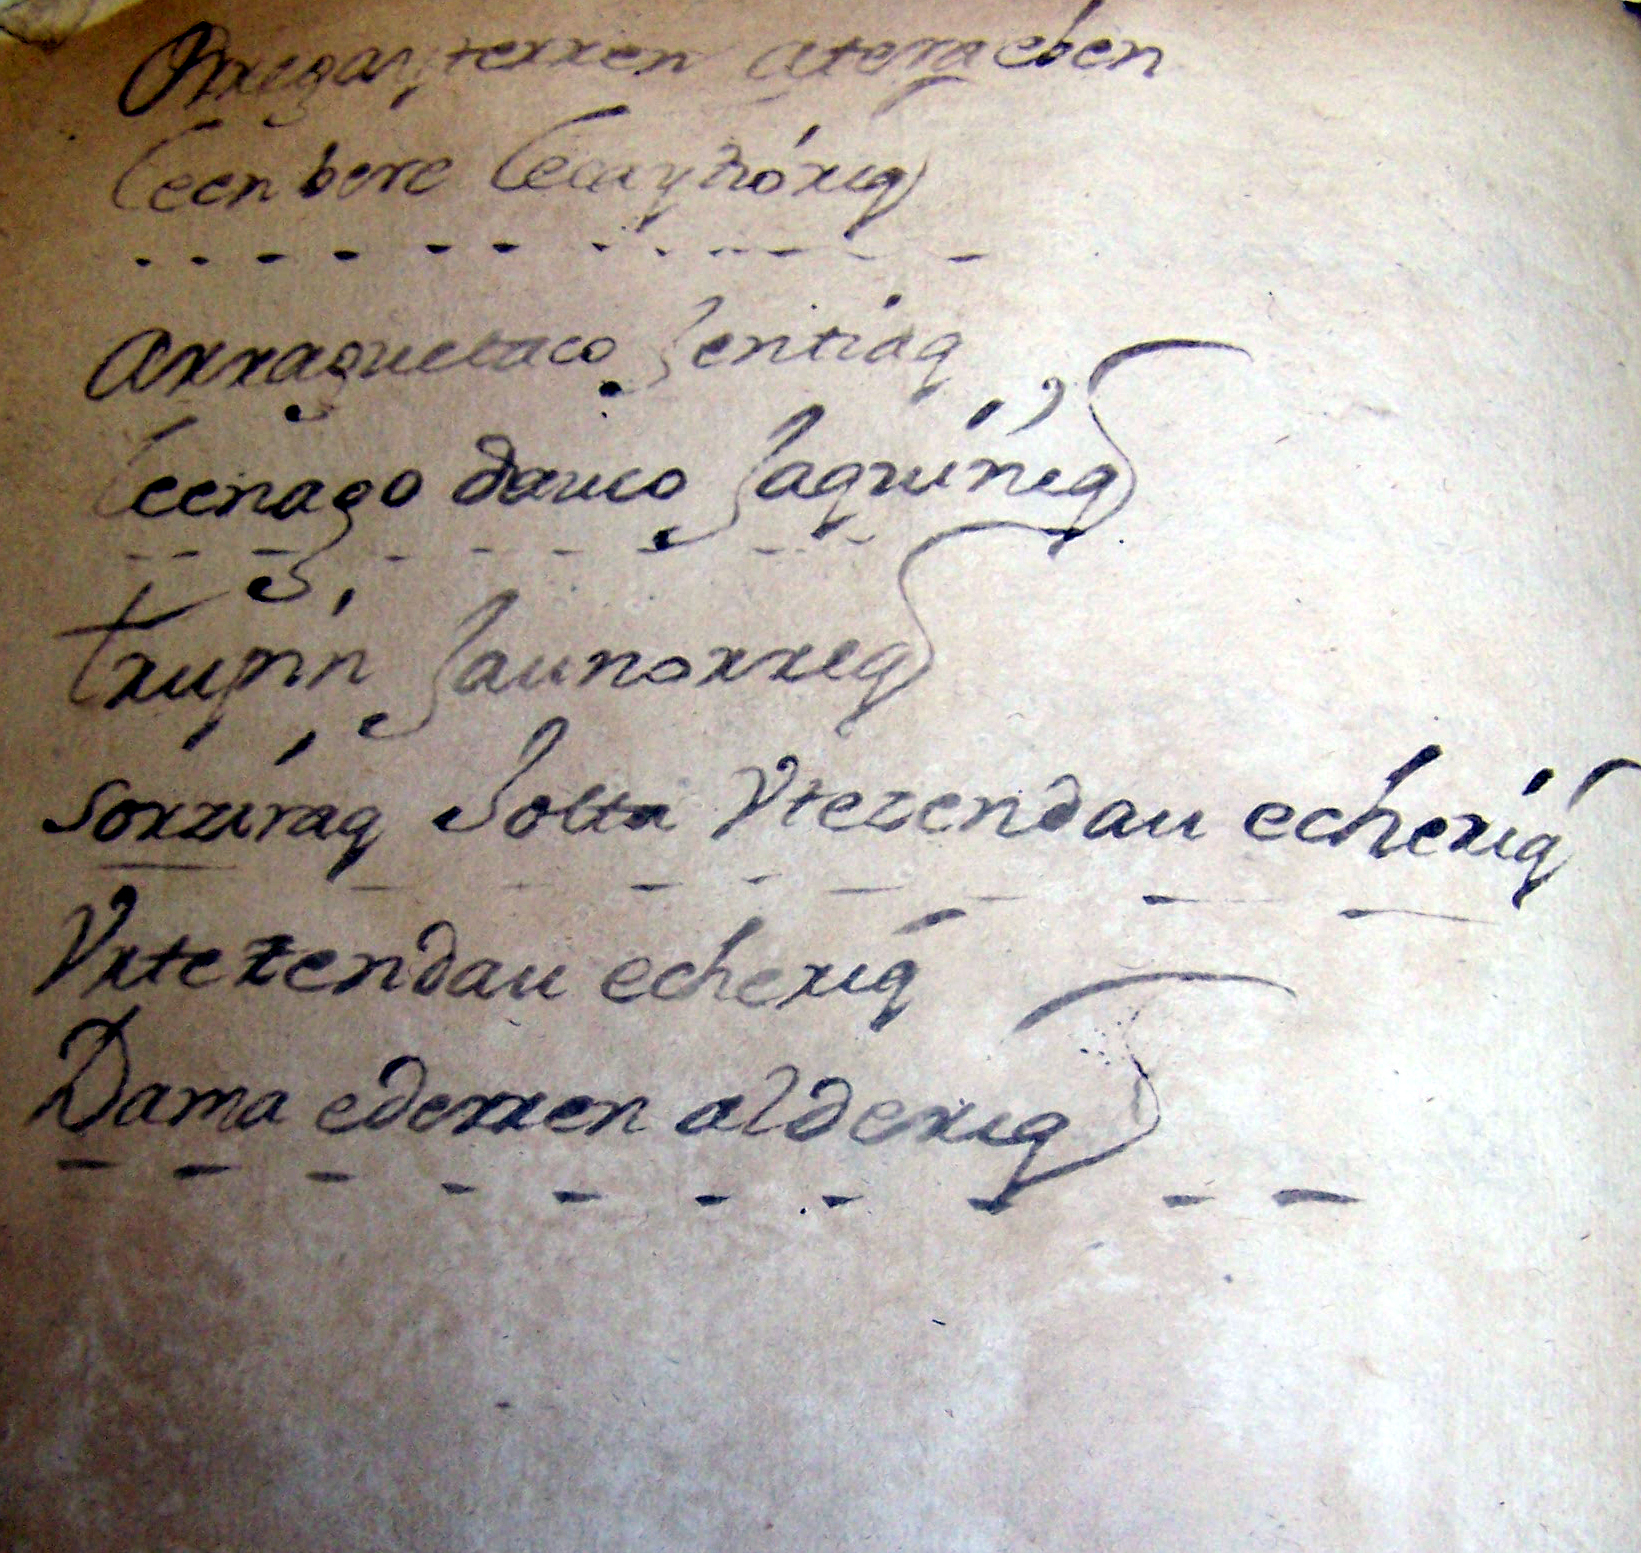 Orregayterren atera eben
leen bere lecayorig
Arraguetaco Jentiaq
leenago dauco Jaquinig
Trupin Jaunorreg
sorziraq Jolta Vtezendau echerig
Vrtezendau echerig
Dama ederren alderig